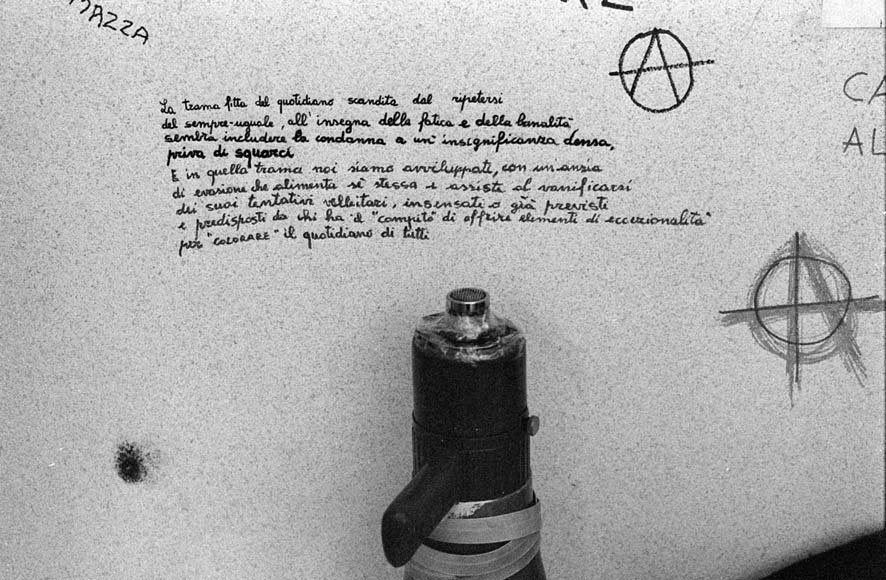 MAZZA
La trama fitta del quotidiano scandita dal ripetersi
del sempre-uguale, all'insegna della fatica e della banalità
sembra includere la condanna a un'insignificanza densa,
priva di squarci
E in quella trama noi siamo avviluppati, con un'ansia
di evasione che alimenta sé stessa e assiste al vanificarsi
dei suoi tentativi velleitari, insensati o già previsti
e predisposti da chi ha il "compito" di offrire elementi di eccezionalità
per "COLORARE" il quotidiano di tutti
CA
AL